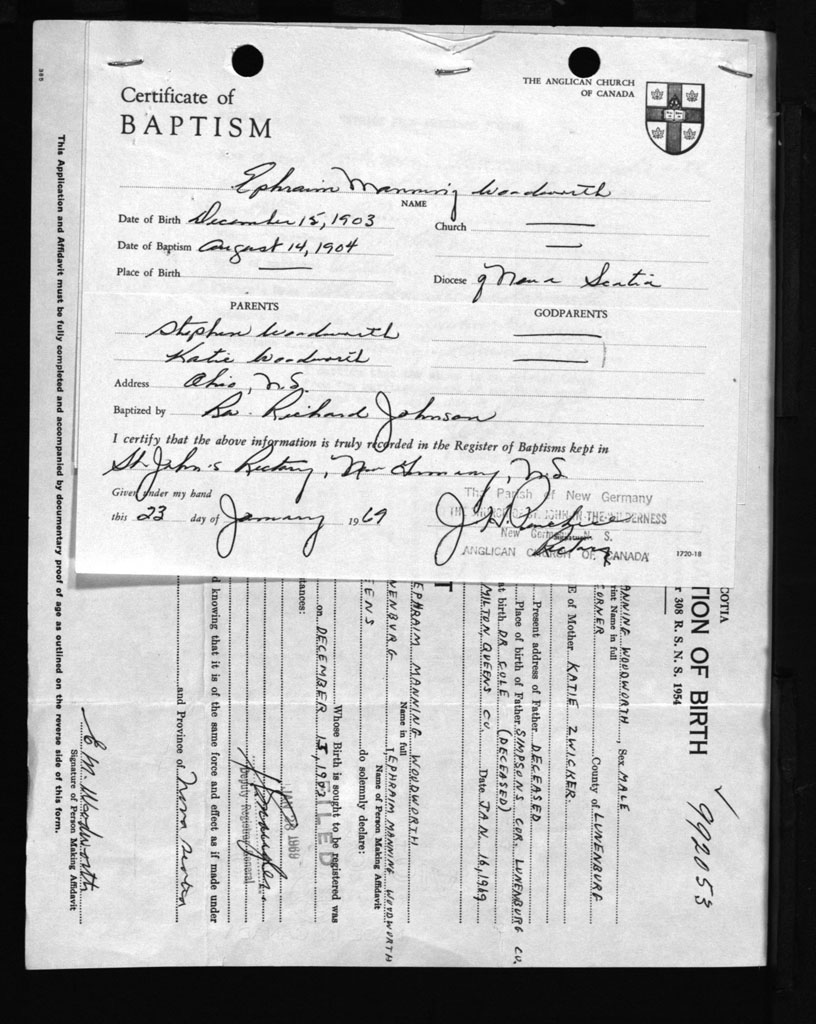 Certificate of
BAPTISM
THE ANGLICAN CHURCH
OF CANADA
Ephraim Manning Woodworth
NAME
Date of Birth December 15, 1903
Church
Date of Baptism August 14, 1904
Place of Birth
Diocese of Nova Scotia
PARENTS
GODPARENTS
Stephen Woodworth
Katie Woodworth
Address Ohio, N.S.
Baptized by Rev. Richard Johnson
I certify that the above information is truly recorded in the Register of Baptisms kept in
St. John's Rectory, New Germany, N.S.
Given under my hand
this 23 day of January 1969
The Parish of New Germany
ST. JOHN-IN-THE-WILDERNESS
New Germany N. S.
ANGLICAN CHURCH OF CANADA
Rector
1720-18
COTIA
TION OF BIRTH
r 308 R. S. N. S. 1954
992053
ANNING WOODWORTH, Sex MALE
rint Name in full
CORNER County of LUNENBURG
E of Mother KATIE ZWICKER.
Present address of Father DECEASED
Place of birth of Father SIMPSONS COR. LUNENBURG CO.
at birth DR. COLE (DECEASED)
MILTON, QUEENS CO. Date JAN 16, 1969
T
EPHRAIM MANNING WOODWORTH
Name in full
NENBURG I, EPHRAIM MANNING WOODWORTH
Name of Person Making Affidavit
EENS do solemnly declare:
Whose Birth is sought to be registered was
on DECEMBER 15, 1903
FILED
tances:
JAN 28 1969
Deputy Registrar General
d knowing that it is of the same force and effect as if made under
and Province of Nova Scotia
E M. Woodworth
Signature of Person Making Affidavit
This Application and Affidavit must be fully completed and accompanied by documentary proof of age as outlined on the reverse side of this form.